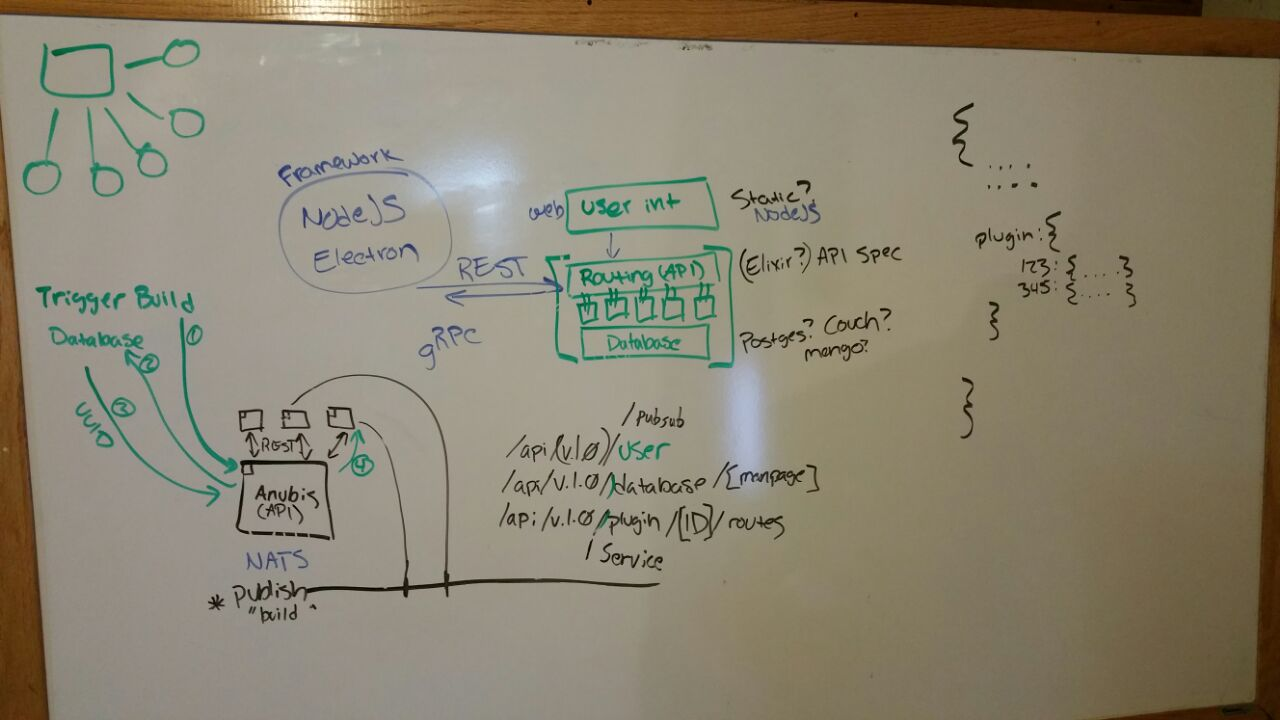 Framework
NodeJS
Electron
REST
gRPC
web
user int
Static?
NodeJS
Routing (API)
(Elixir?) API spec
Database
Postges? Couch?
mongo?
{
....
....
plugin: {
123: {....}
345: {....}
}
}
Trigger Build
Database
①
②
③
UUID
REST
④
Anubis
(API)
NATS
* publish
"build"
/pubsub
/api/(v.1.0)/user
/api/v.1.0/database/[manpage]
/api/v.1.0/plugin/[ID]/routes
/ Service